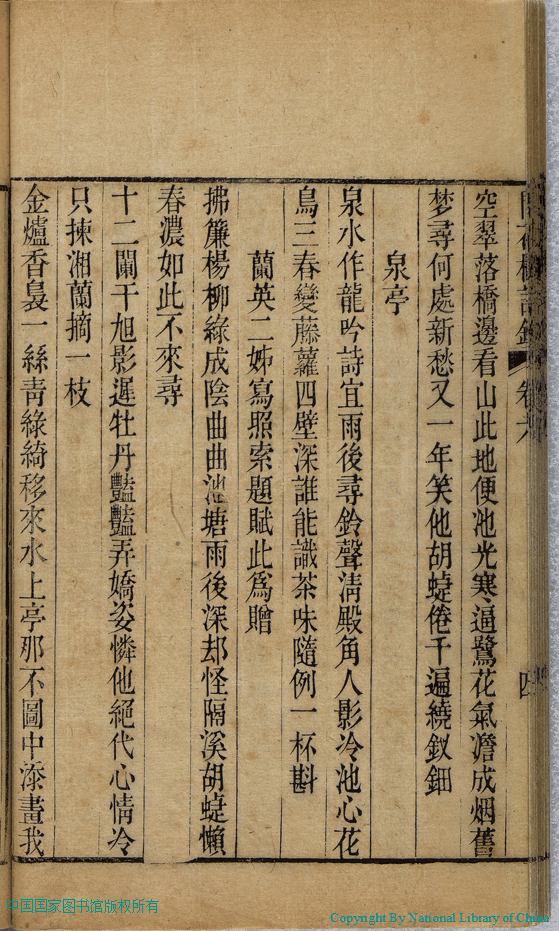 空翠落橋邊看山此地便池光寒逼鷺花氣澹成烟舊
梦尋何處新愁又一年笑他胡蜨倦千遍繞釵鈿
泉亭
泉水作龍吟詩宜雨後尋鈴聲淸殿角人影冷池心花
鳥三春變藤蘿四壁深誰能識茶味隨例一杯斟
蘭英二姊寫照索題賦此爲贈
拂簾楊柳綠成陰曲曲池塘雨後深却怪隔溪胡蜨懶
春濃如此不來尋
十二闌干旭影遲牡丹豔豔弄嬌姿憐他絕代心情冷
只揀湘蘭摘一枝
金爐香裊一絲靑綠綺移來水上亭那不圖中添畫我
中国国家图书馆版权所有
Copyright By National Library of China